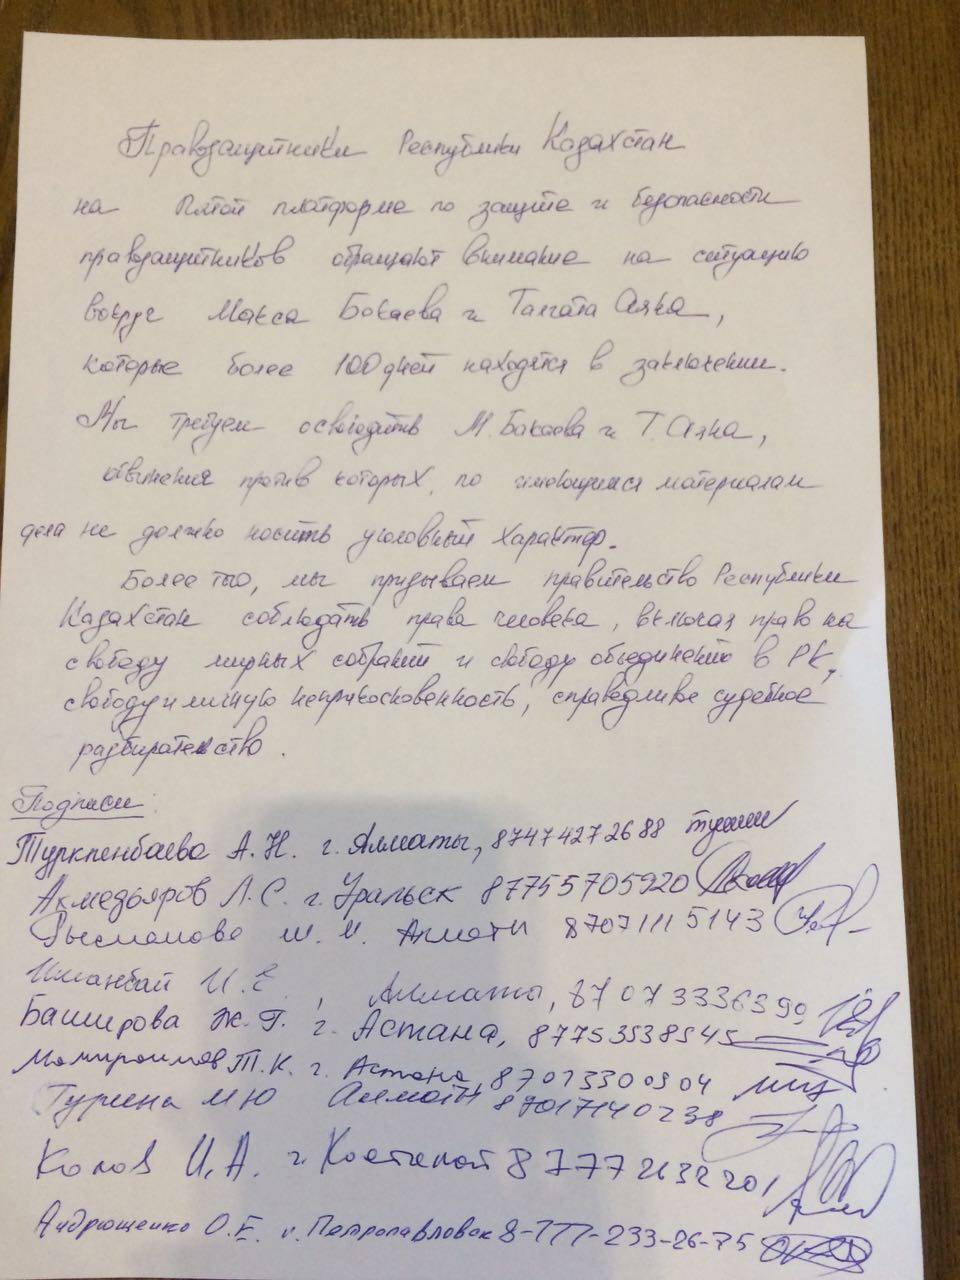 Правозащитники Республики Казахстан
на Пятой платформе по защите и безопасности
правозащитников обращают внимание на ситуацию
вокруг Макса Бокаева и Талгата Аяна,
которые более 100 дней находятся в заключении.
Мы требуем освободить М. Бакаева и Т. Аяна,
обвинения против которых, по имеющимся материалам
дела не должно носить уголовный характер.
Более того, мы призываем правительство Республики
Казахстан соблюдать права человека, включая право на
свободу мирных собраний и свободу объединению в РК,
свободу и личную неприкосновенность, справедливое судебное
разбирательство.
Подписи:
Туркпенбаева А. Н. г. Алматы, 87474272688
Ахмедьяров Л. С. г. Уральск 87755705920
Рысмонова М. Алматы 87071115143
Иманбай И. Е., Алматы, 87073336390
Баширова Ж. Г. г. Астана, 87753538545
Момироимов Т. К. г. Астана
Турина М Ю Алматы 87017140238
Колов И. А. г. Костанай
Андрющенко О. Е. г. Петропавловск 8-777-233-26-75